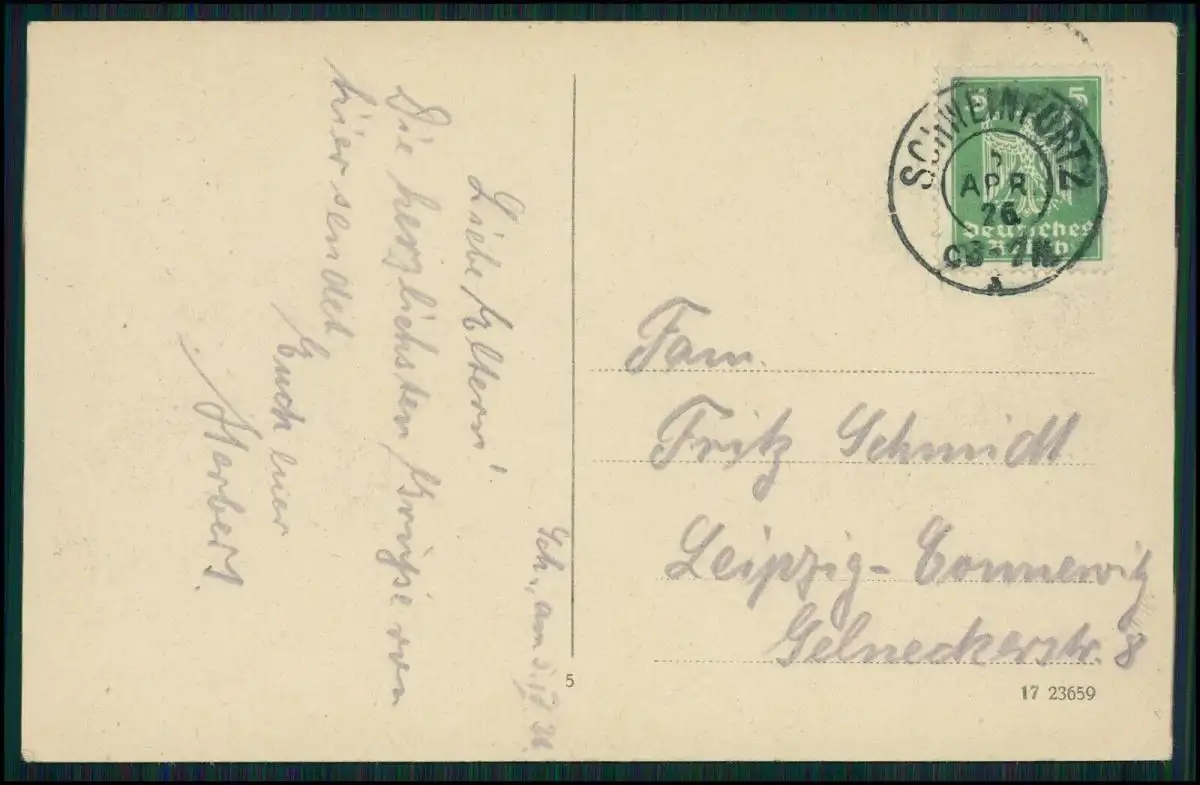 Sch., am 5.IV.26.
Liebe Eltern!
Die herzlichsten Grüße von
hier sendet
Euch
Herbert.
SCHWEINFURT 2
5
APR
26
6-7N
A
5 5
Deutsches
Reich
Fam.
Fritz Schmidt
Leipzig-Connewitz
Selneckerstr. 8
5
17 23659